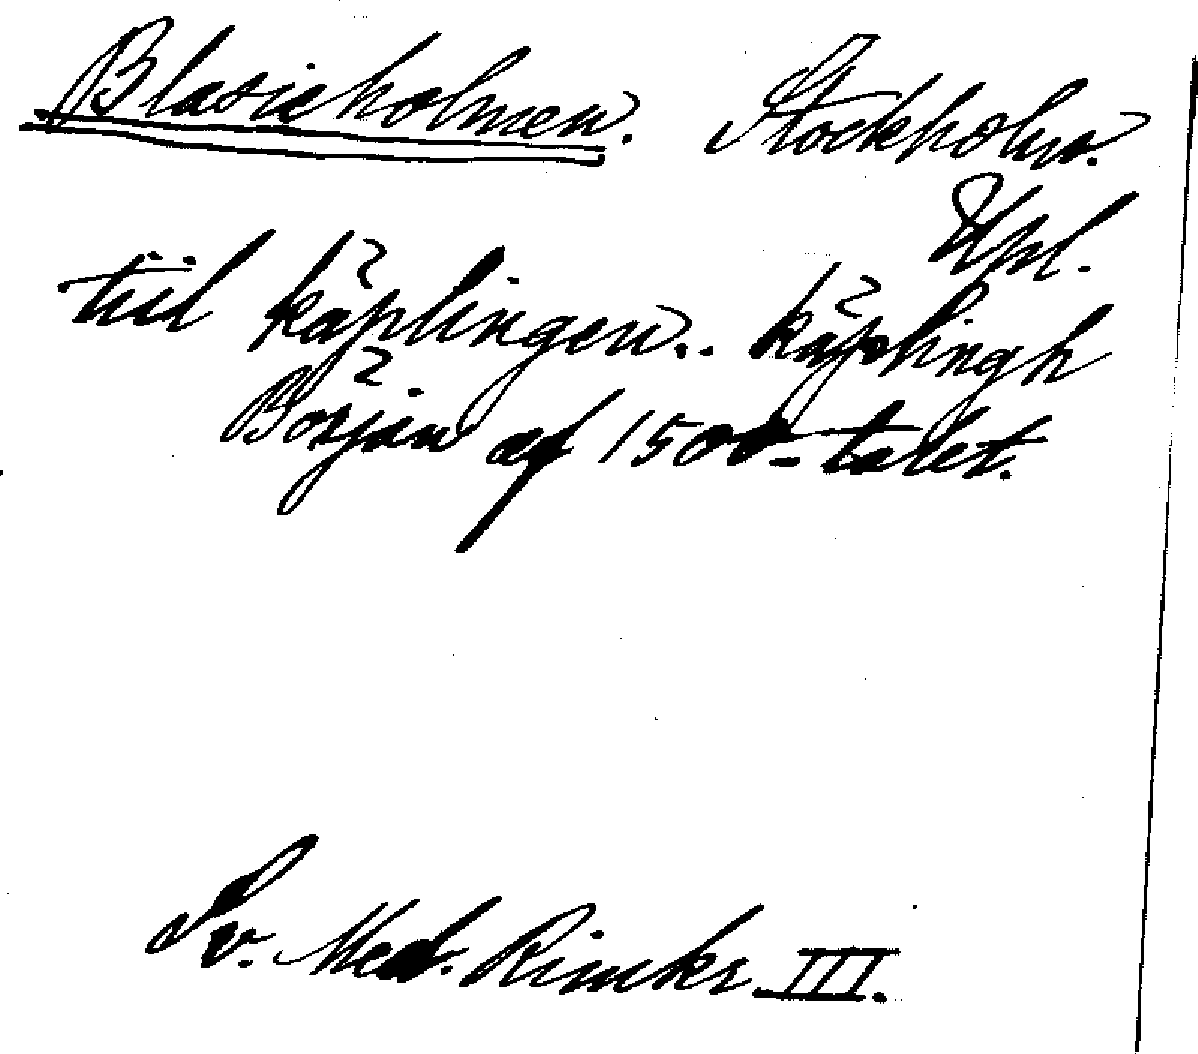 Blasieholmen. Stockholm.
Upl.
tiil käplingen.. käplingh
Början af 1500-talet.
Sv. Med. Rimkr. III.